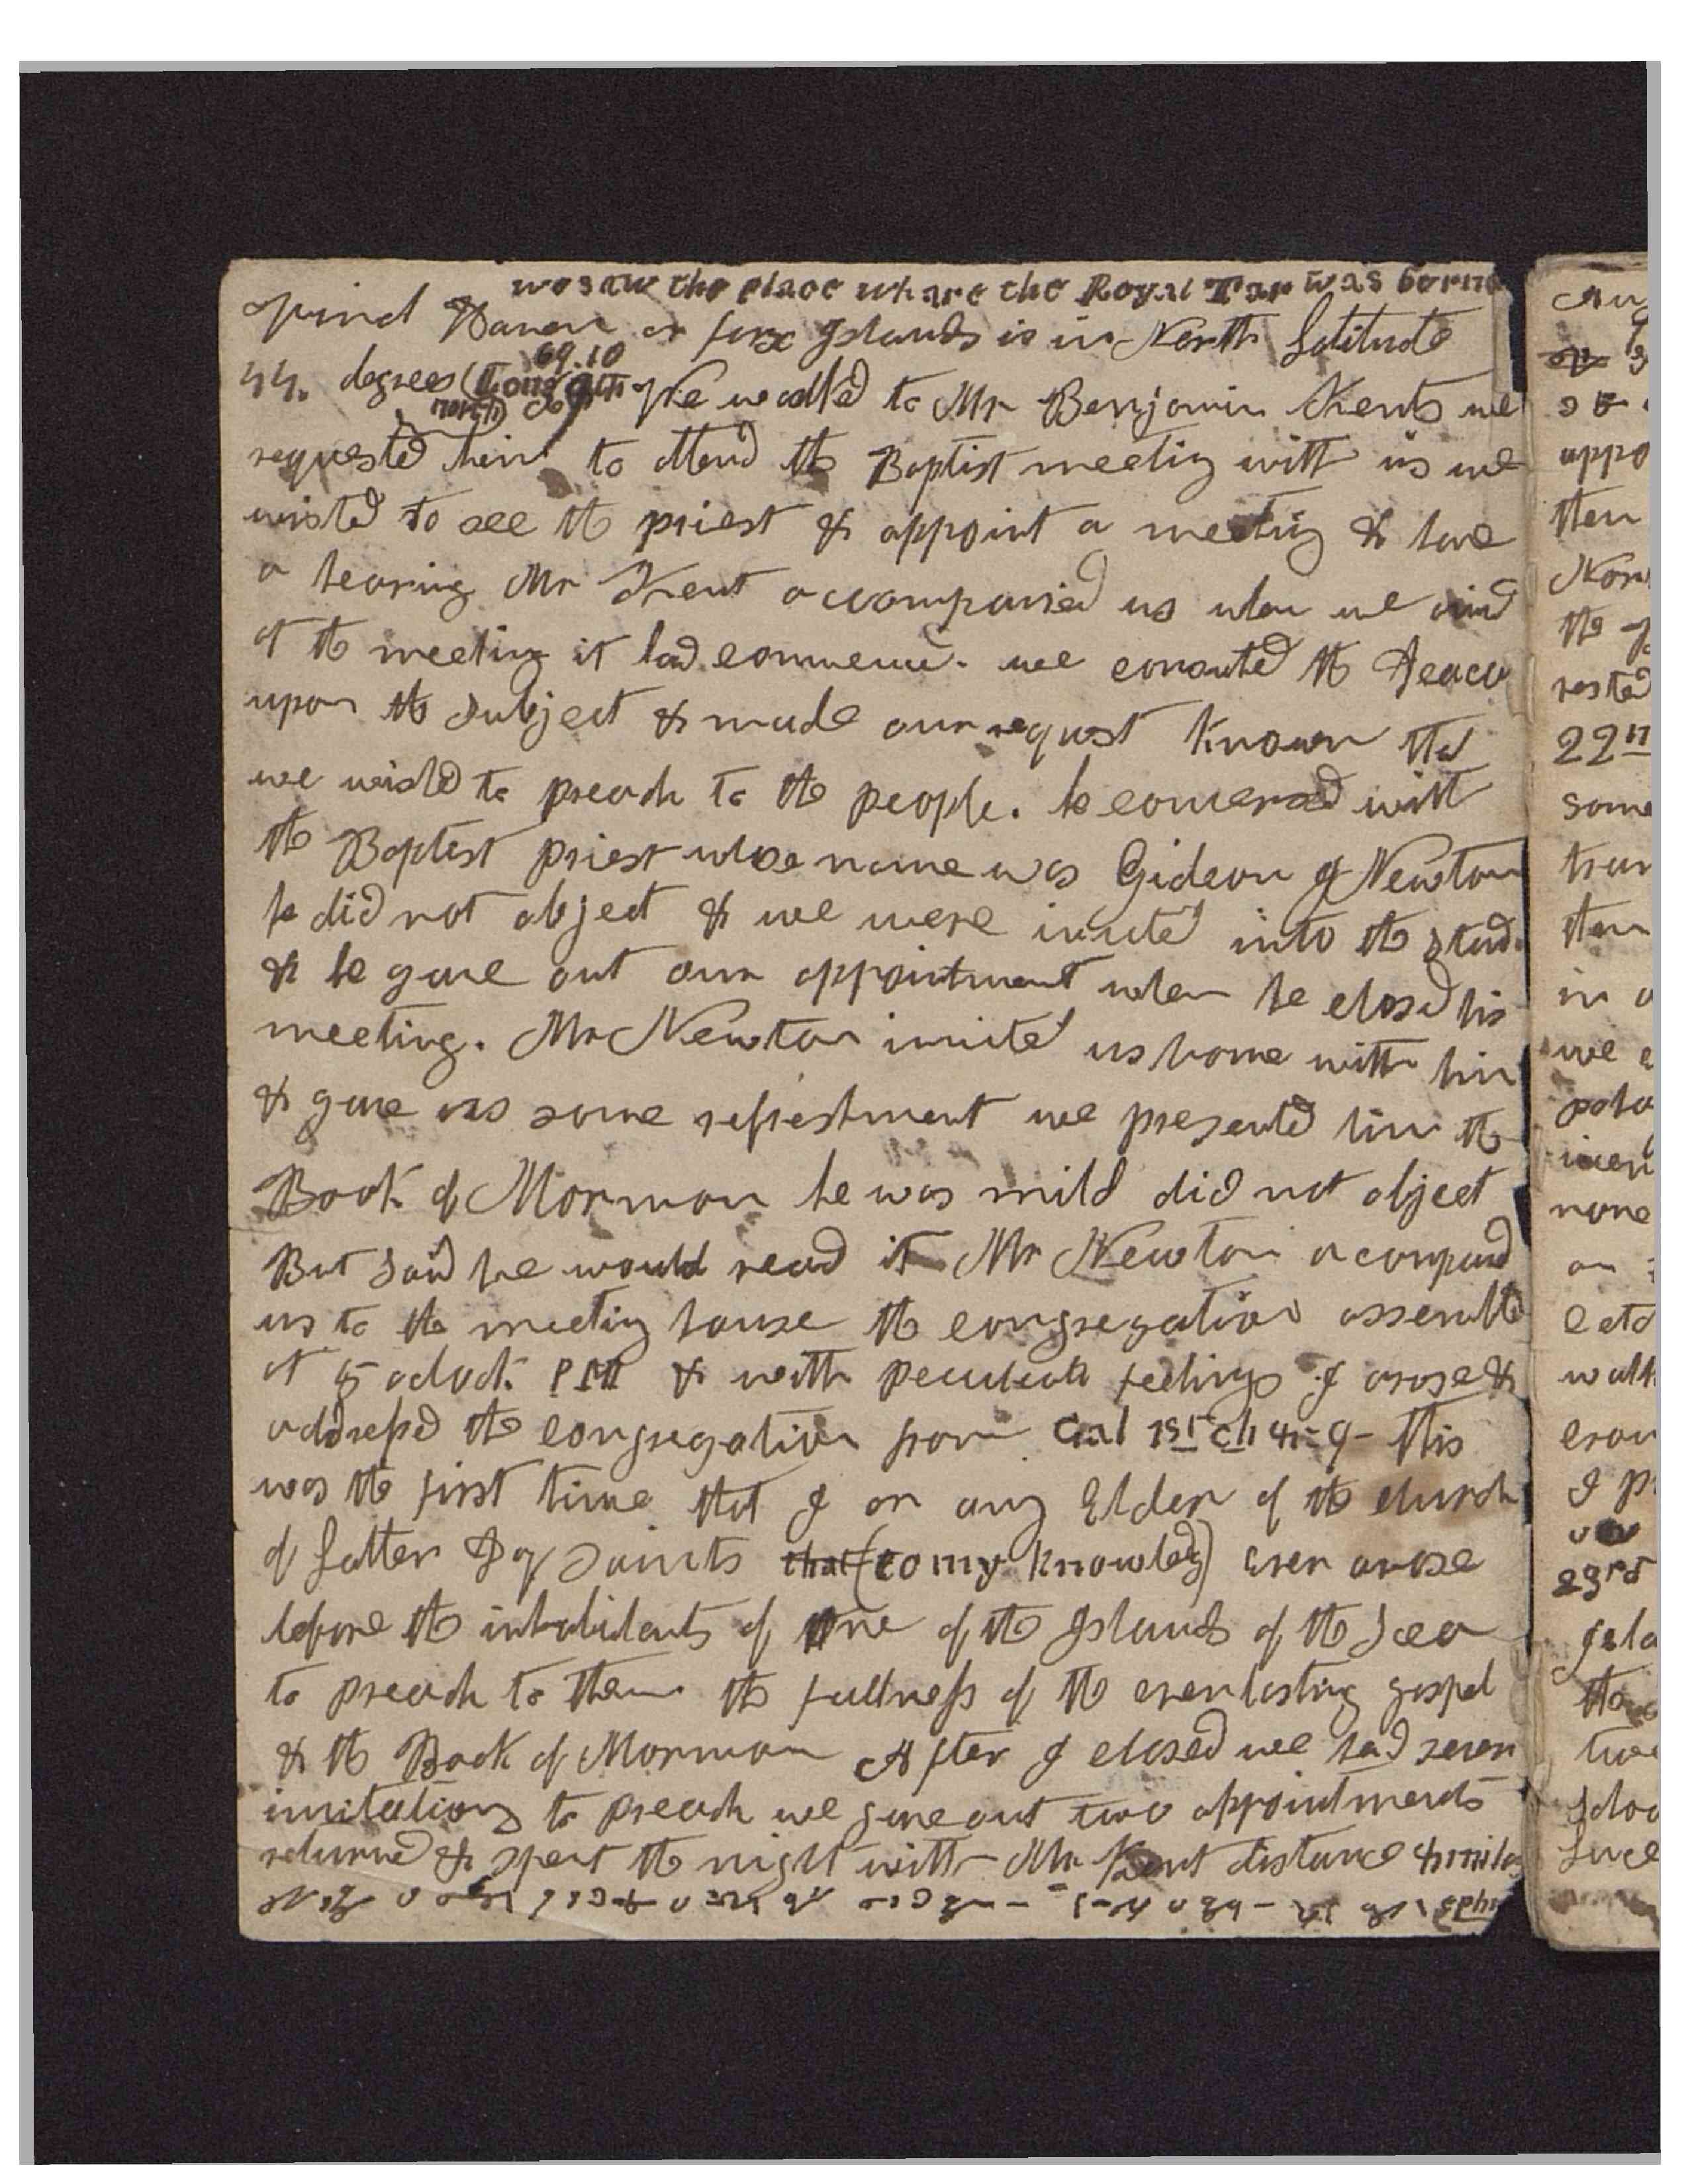 we saw the place whare the Royal Tar was borne
Vinel Haven or fox Islands is in North Latitude
44. degrees (Longitude 69.10
north) We walked to Mr Benjamin Kents we
requested him to attend the Baptist meeting with us we
wished to see the priest & appoint a meeting & have
a hearing Mr Kent accompanied us when we arived
at the meeting it had commencd. we consulted the Deacon
upon the subject & made our request known that
we wished to preach to the people. he conversed with
the Baptist priest whose name was Gideon J Newton
he did not object & we were invited into the stand
& he gave out our appointment when he closed his
meeting. Mr Newton invited us home with him
& gave us some refreshment we presented him the
Book of Mormon he was mild did not object
But said he would read it Mr Newton accompanied
us to the meeting house the congregation assembled
at 5 oclock PM & with peculiar feelings I arose &
addressed the congregation from Gal 1st ch 4-9- This
was the first time that I or any Elder of the church
of Latter Day Saints that (to my knowledg) ever arose
before the inhabitants of one of the Islands of the Sea
to preach to them the fullness of the everlasting gospel
& the Book of Mormon After I closed we had seven
invitations to preach we gave out two appointments
returned & spent the night with Mr Kent distance 4 miles